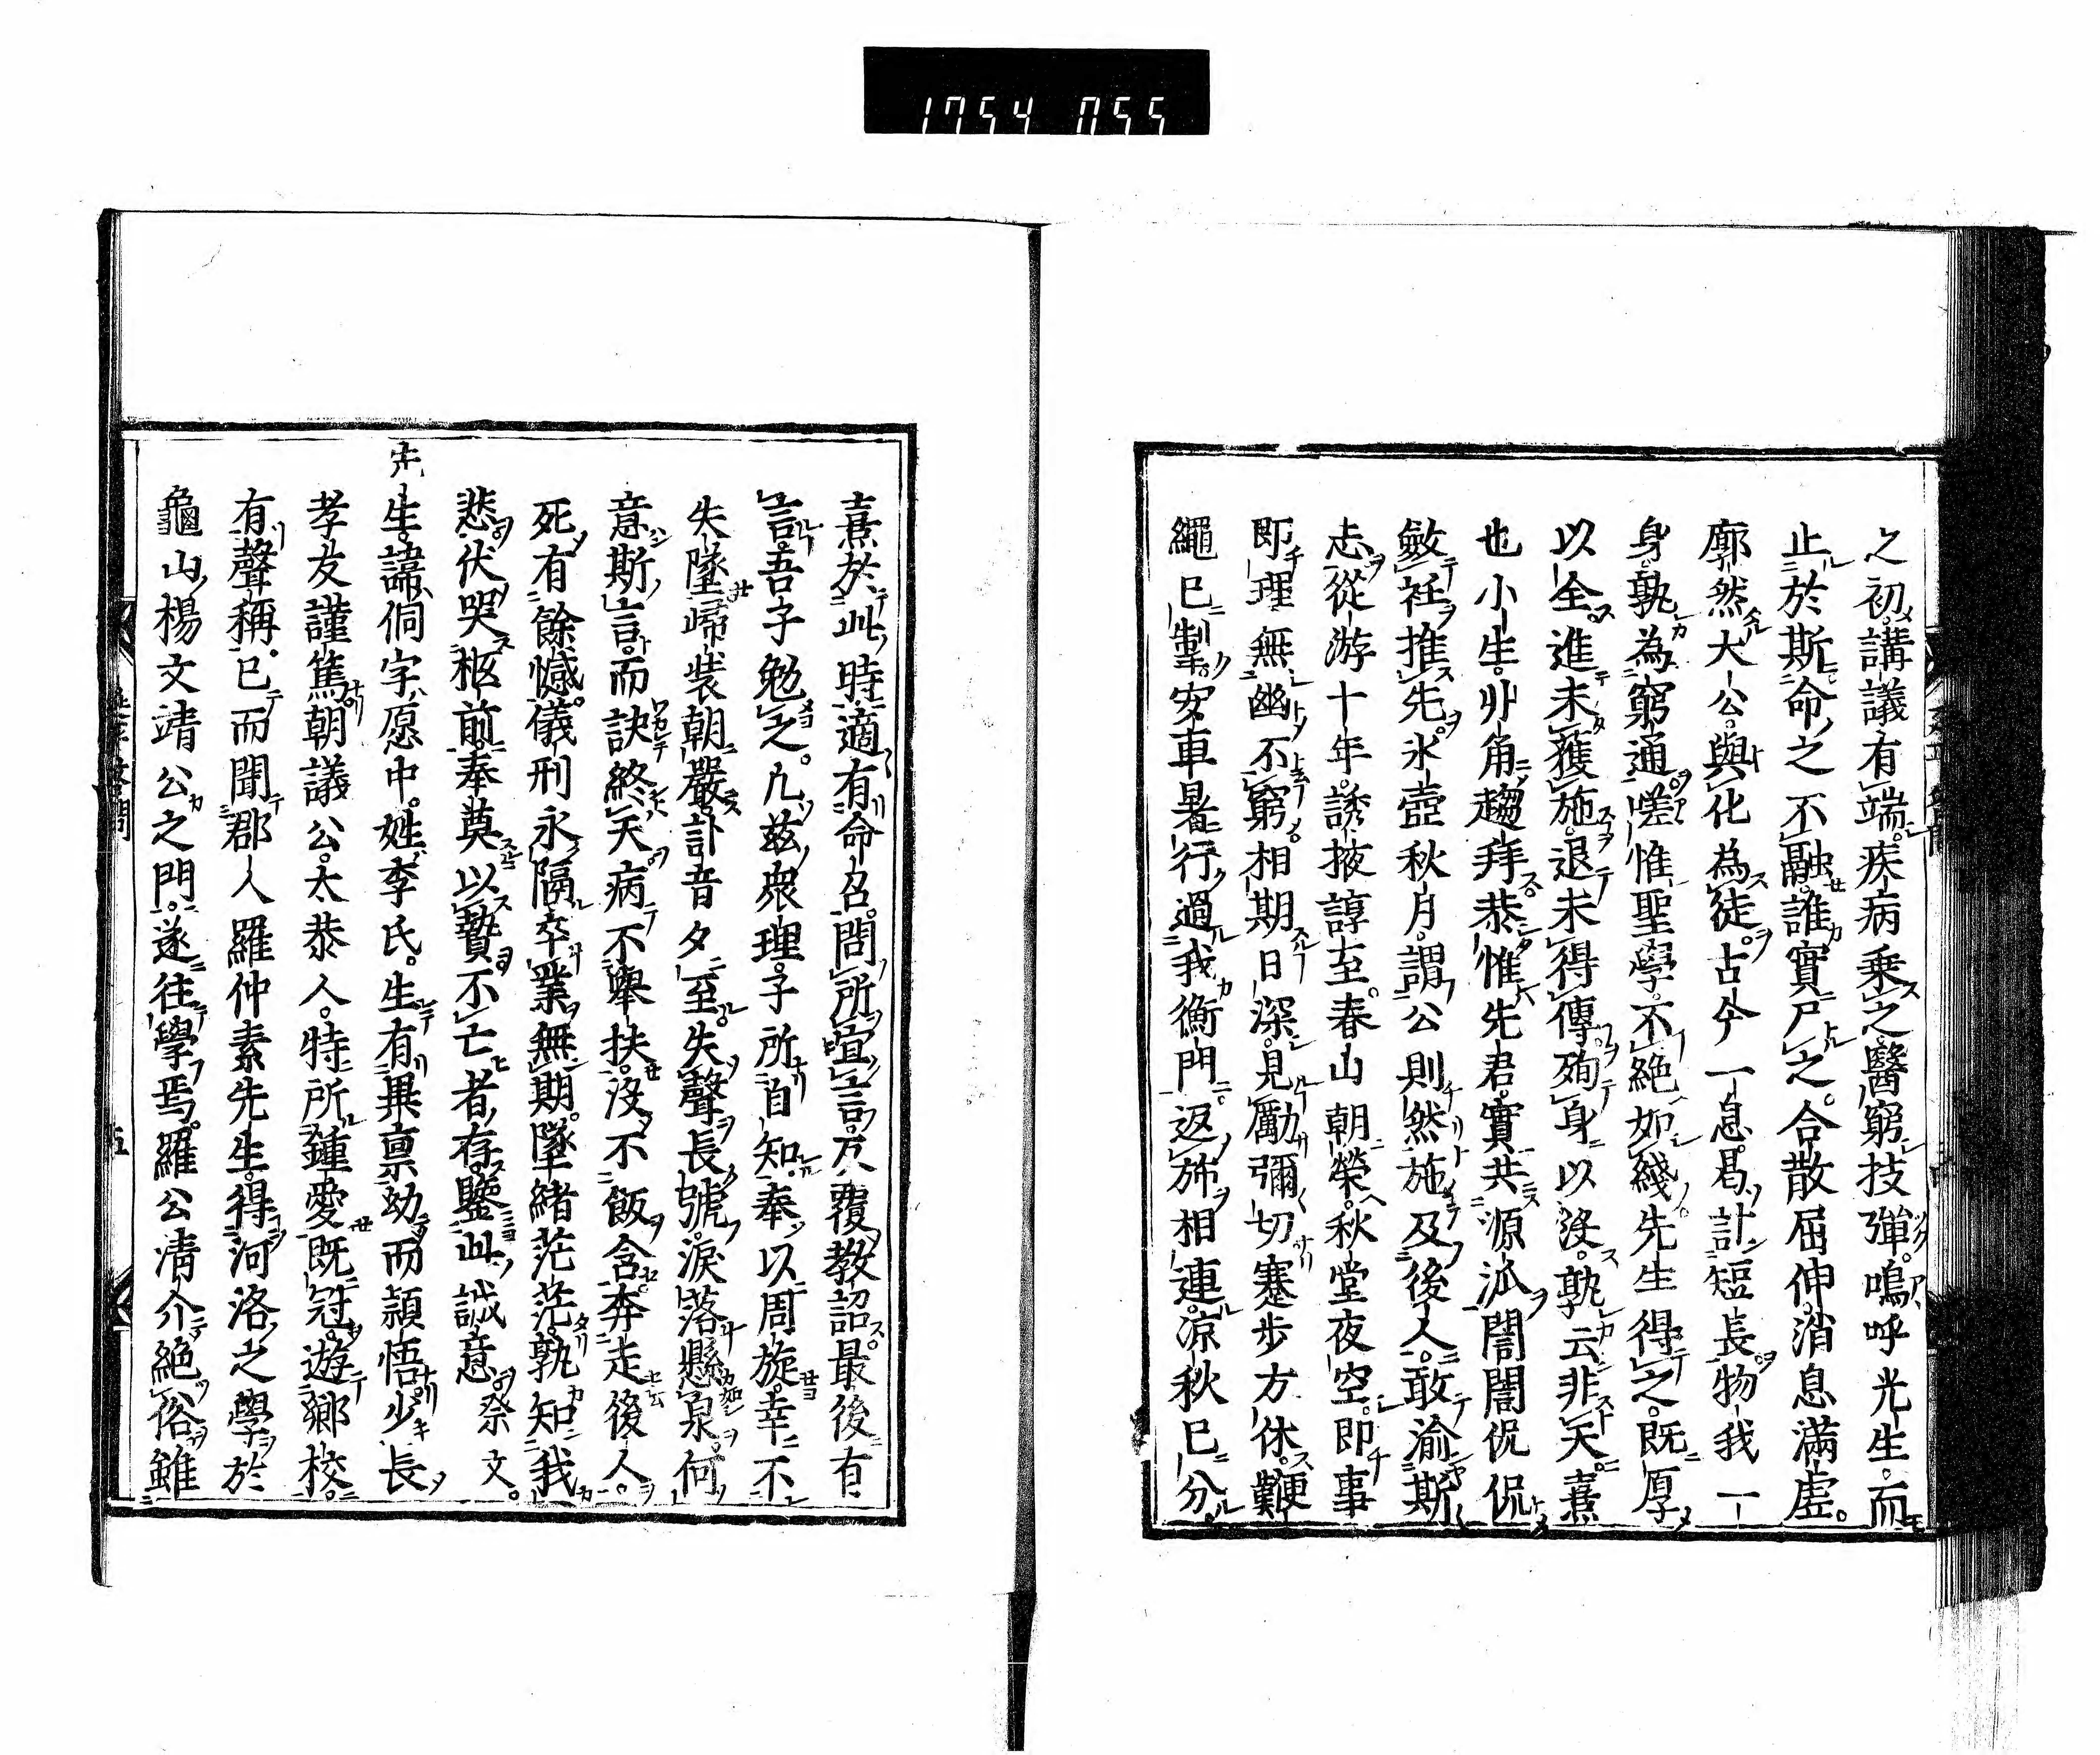 1754 055
之初。講議有端。疾病乗之。醫窮技殫。嗚呼光生。而
止於斯。命之不融。誰實尸之。合散屈伸。消息滿虛。
廓然大公。與化為徒。古今一息。曷計短長。物我一
身。孰為窮通。嗟惟聖學。不絶如綫。先生得之。既厚
以全。進未獲施。退未得傳。殉身以沒。孰云非天。熹
也小生。丱角趨拜。恭惟先君。實共源泒。誾誾侃侃
斂衽推先。氷壺秋月。謂公則然。施及後人。敢渝斯
志。從游十年。誘掖諄至。春山朝榮。秋堂夜空。即事
即理。無幽不窮。相期日深。見勵彌切。蹇歩方休。鞭
繩已掣。安車暑行。過我衡門。返旆相連。涼秋已分。
熹於此時。適有命召。問所宜言。反覆教詔。最後有
言。吾子勉之。凢兹衆理。子所自知。奉以周旋。幸不
失墜。歸装朝嚴。訃音夕至。失聲長號。淚落懸泉。何
意斯言。而訣終天。病不舉扶。沒不飯含。奔走後人。
死有餘憾。儀刑永隔。卒業無期。墜緒茫茫。孰知我
悲。伏哭柩前。奉奠以贄。不亡者存。鑒此誠意。祭文。
先生。諱侗字愿中。姓李氏。生有異禀。幼而頴悟。少長
孝友謹篤。朝議公。太恭人。特所鍾愛。既冠。遊鄉校。
有聲稱。已而聞郡人羅仲素先生。得河洛之學於
龜山楊文靖公之門。遂往學焉。羅公清介絶俗。雖
五